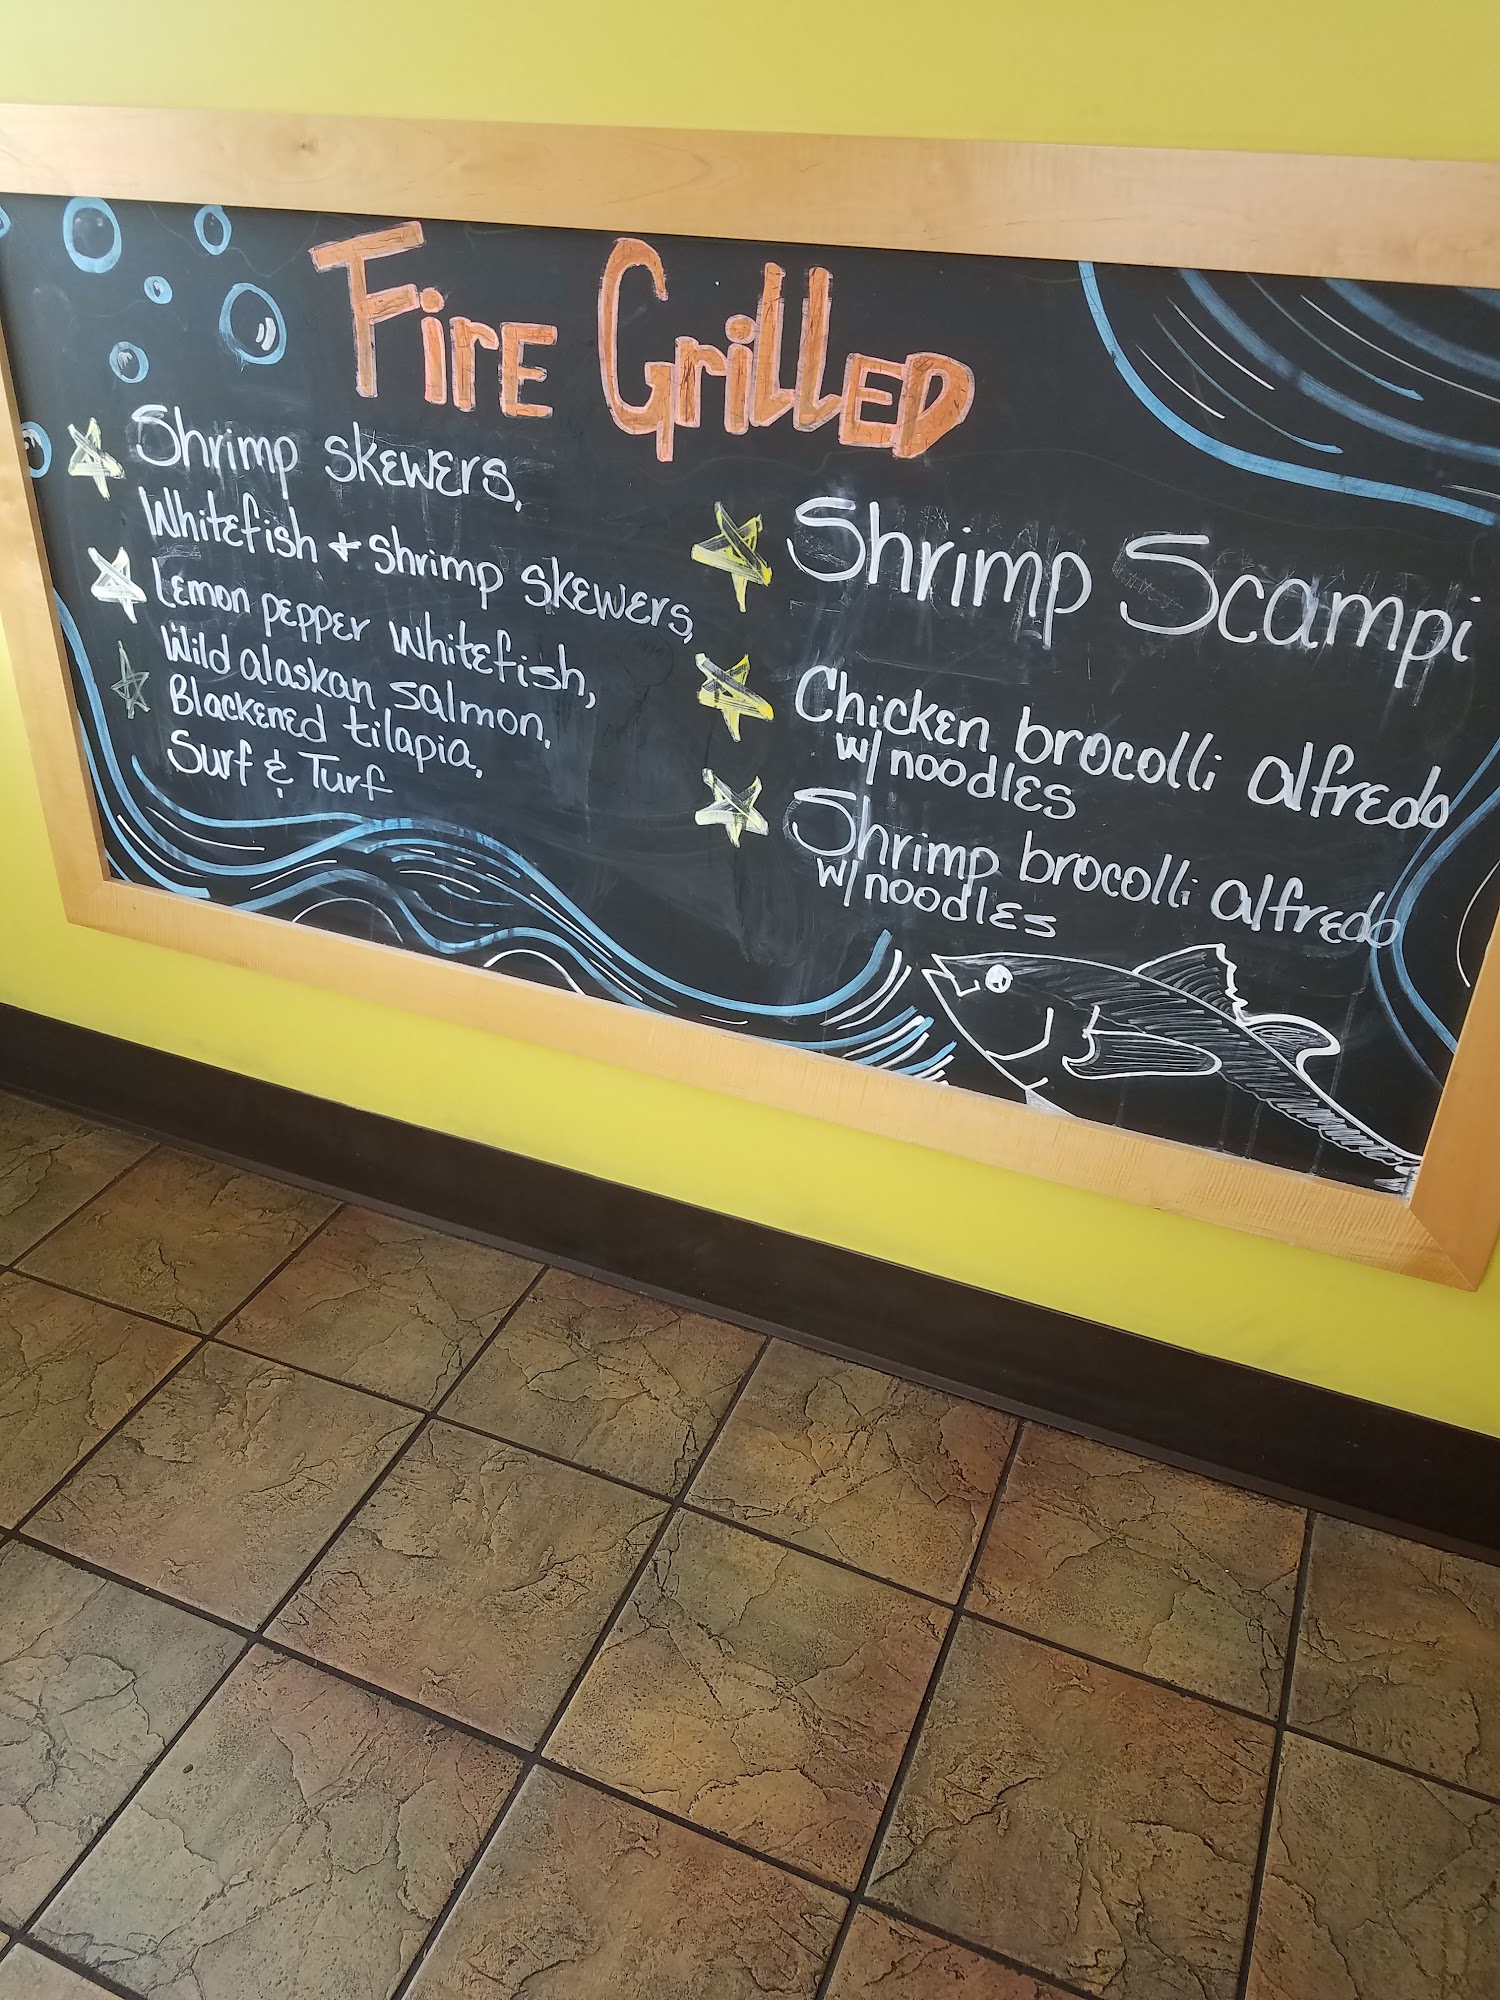 Fire Grilled
Shrimp skewers,
Whitefish + shrimp skewers,
Lemon pepper whitefish,
Wild alaskan salmon,
Blackened tilapia,
Surf & Turf
Shrimp Scampi
Chicken brocolli alfredo
w/noodles
Shrimp brocolli alfredo
w/noodles